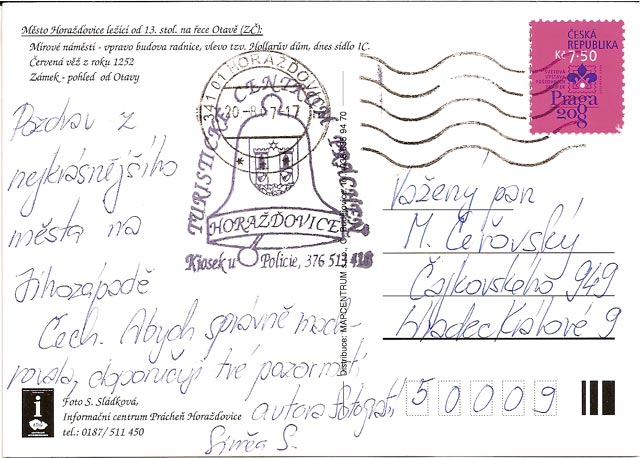 Město Horažďovice ležící od 13. stol. na řece Otavě (ZČ):
Mírové náměstí - vpravo budova radnice, vlevo tzv. Hollarův dům, dnes sídlo IC.
Červená věž z roku 1252
Zámek - pohled od Otavy
ČESKÁ
REPUBLIKA
Kč 7·50
Praga
2008
341 01 HORAŽĎOVICE
TURISTICKÉ CENTRUM PRÁCHEŇ
HORAŽĎOVICE
Kiosek u Policie, 376 513 418
Pozdrav z
nejkrásnějšího
města na
Jihozápadě
Čech. Abych správně mach-
rovala, doporučuji tvé pozornosti
autora fotografií
Simča S.
Distribuce: MAPCENTRUM
Vážený pan
M. Čeřovský
Čajkovského 949
Hradec Králové 9
50009
Foto S. Sládková,
Informační centrum Prácheň Horažďovice
tel.: 0187/ 511 450
i